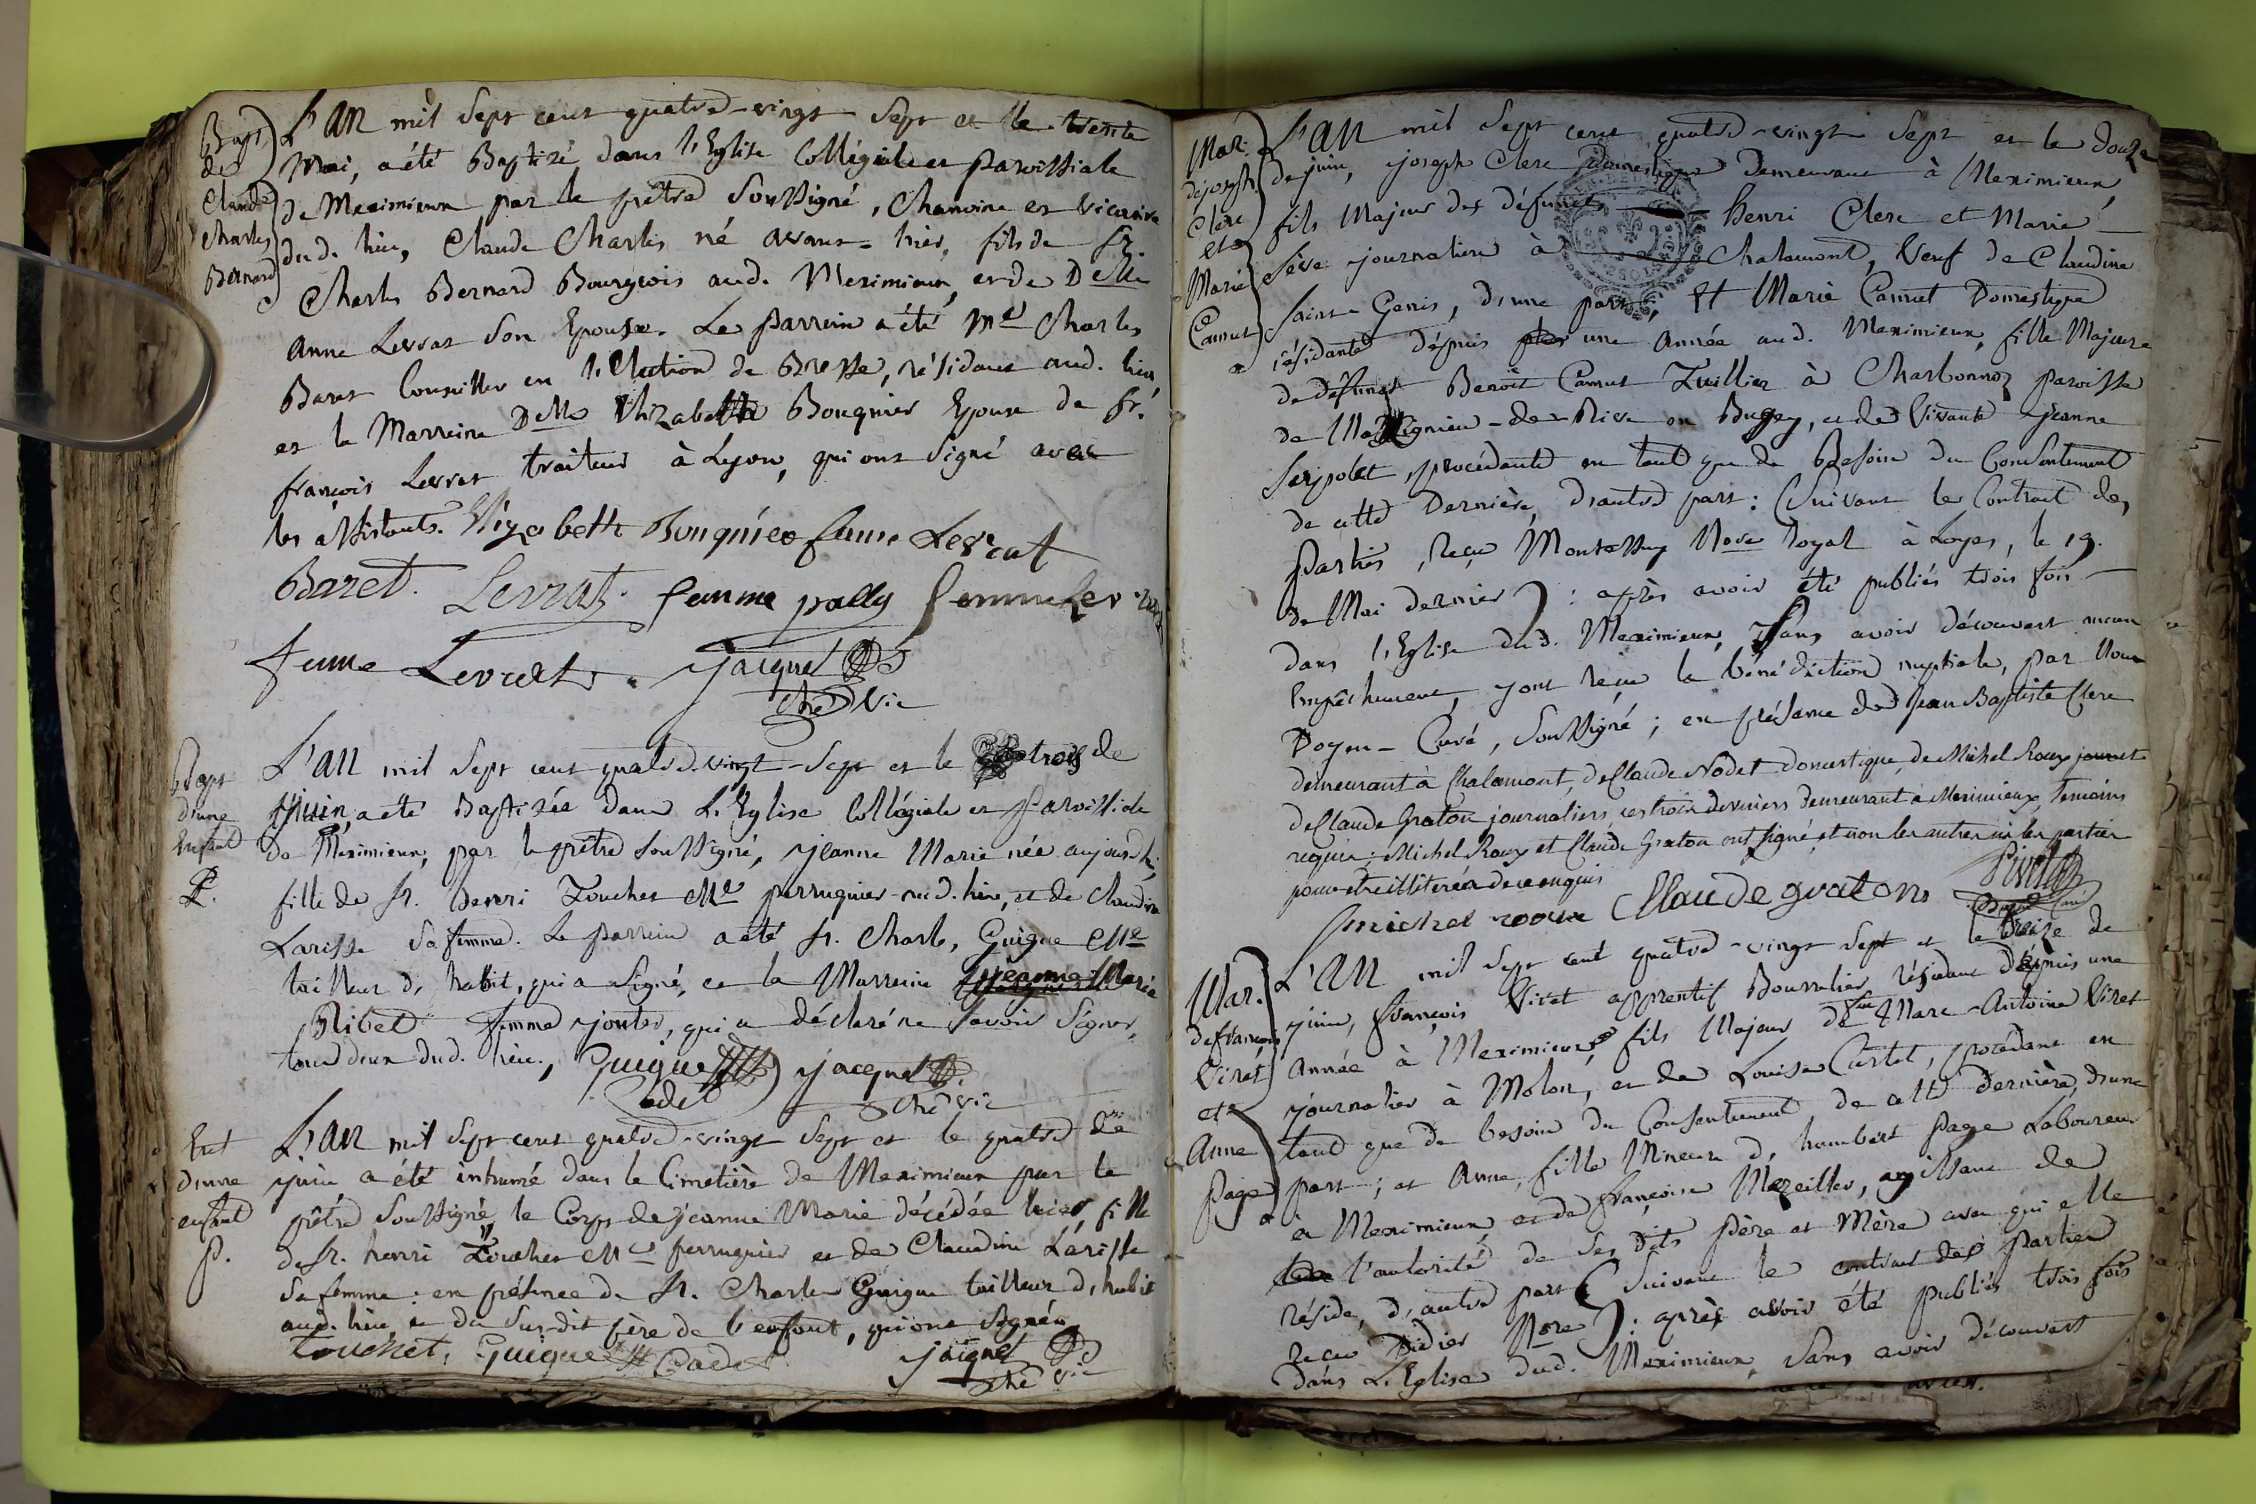 Bapt
de
Claude
Charles
Bernard
L'An mil Sept cent quatre-vingt Sept et le trente
Mai, a été Baptisé dans l'Eglise Collégiale et paroissiale
de Meximieux par le prêtre Soussigné, Chanoine et vicaire
dud. lieu, Claude Charles né avant-hier, fils de Sr.
Charles Bernard Bourgeois aud. Meximieux, et de Delle
Anne Levrat Son Epouse. Le parrein a été Mre Charles
Baret Conseiller en l'Election de Bresse, résidant aud. lieu,
et la Marreine Delle Elizabeth Bouquier Epouse de Sr.
françois Levrat traiteur à Lyon, qui ont Signé avec
les assistants. Elizabeth Bouquier femme Levrat
Baret. Levrat. femme pally femme Lev
femme Levrat. Jacquet
che Vic
Bapt
d'une
Enfant
P.
L'An mil Sept cent quatre-vingt-Sept et le trois de
juin, a été Baptisée dans L'Eglise Collégiale et Paroissiale
de Meximieux, par le prêtre Soussigné, jeanne Marie née aujourd'hui,
fille de Sr. henri Touchet Me perruquier aud. lieu, et de Claudine
Larisse Sa femme. Le parrein a été Sr. Charles Guigue Me
tailleur d'habit, qui a Signé, et la Marreine jeanne Marie
Ribet femme , qui a déclaré ne Savoir Signer,
tous deux dud. lieu. Guigue Jacquet
Cadet che Vic
Ent
d'une
enfant
p.
L'An mil Sept cent quatre-vingt Sept et le quatre de
juin a été inhumé dans le Cimetière de Meximieux par le
prêtre Soussigné, le Corps de jeanne Marie décédée hier, fille
de Sr. henri Touchet Me perruquier et de Claudine Larisse
Sa femme: en présence de Sr. Charles Guigue tailleur d'habit
aud. lieu et du Sus-dit père de l'enfant, qui ont Signés.
touchet, Guigue Cadet Jacquet
che Vic
Mar.
de joseph
Clerc
et
Marie
Camut
L'An mil Sept cent quatre-vingt Sept et le douze
de juin, joseph Clerc Domestique Demeurant à Meximieux,
fils Majeur des défunts henri Clerc et Marie
Sève journaliers à Chalamont, Veuf de Claudine
Saint-Genis, d'une part, Et Marie Camut Domestique
résidante depuis une Année aud. Meximieux, fille Majeure
de défunt Benoît Camut Tuillier à Charbonnoz paroisse
de Martignieu-de-Rive en Bugey, et de Vivante jeanne
Serpolet, procédante en tant que de Besoin du Consentement
de cette Dernière, d'autre part: (Suivant le Contract des
parties, reçu Montessuy Nore Royal à Loyes, le 19.
de Mai dernier): après avoir été publiés trois fois
dans l'Eglise dud. Meximieux, Sans avoir découvert aucun
Empêchement, y ont reçu la bénédiction nuptiale, par Nous
Doyen-Curé, Soussigné; en présence de Jean Baptiste Clerc
demeurant à Chalamont, de Claude Nodet Domestique, de Michel Roux journal
de Claude Graton journaliers, ces trois derniers Demeurant à Meximieux, temoins
requis; Michel Roux et Claude Graton ont Signé, et non les autres ni les parties
pour être illitérés de ce enquis
michel roux Claude graton
Mar.
de françois
Viret
et
Anne
page
L'An mil Sept cent quatre-vingt Sept et le treize de
juin, françois Viret apprentif Bourrelier résidant depuis une
Année à Meximieux, fils Majeur de feu Marc-Antoine Viret
journalier à Molon, et de Louise Curtet, procédant en
tant que de besoin du Consentement de cette Dernière, d'une
part; et Anne, fille Mineure d'humbert page Laboureur
à Meximieux, et de françoise Mezeillet, agissant de
l'autorité de Ses Dits père et Mère avec qui elle
réside, d'autre part (Suivant le contract des parties
reçu Didier Nore): après avoir été publiés trois fois
dans L'Eglise dud. Meximieux, Sans avoir découvert